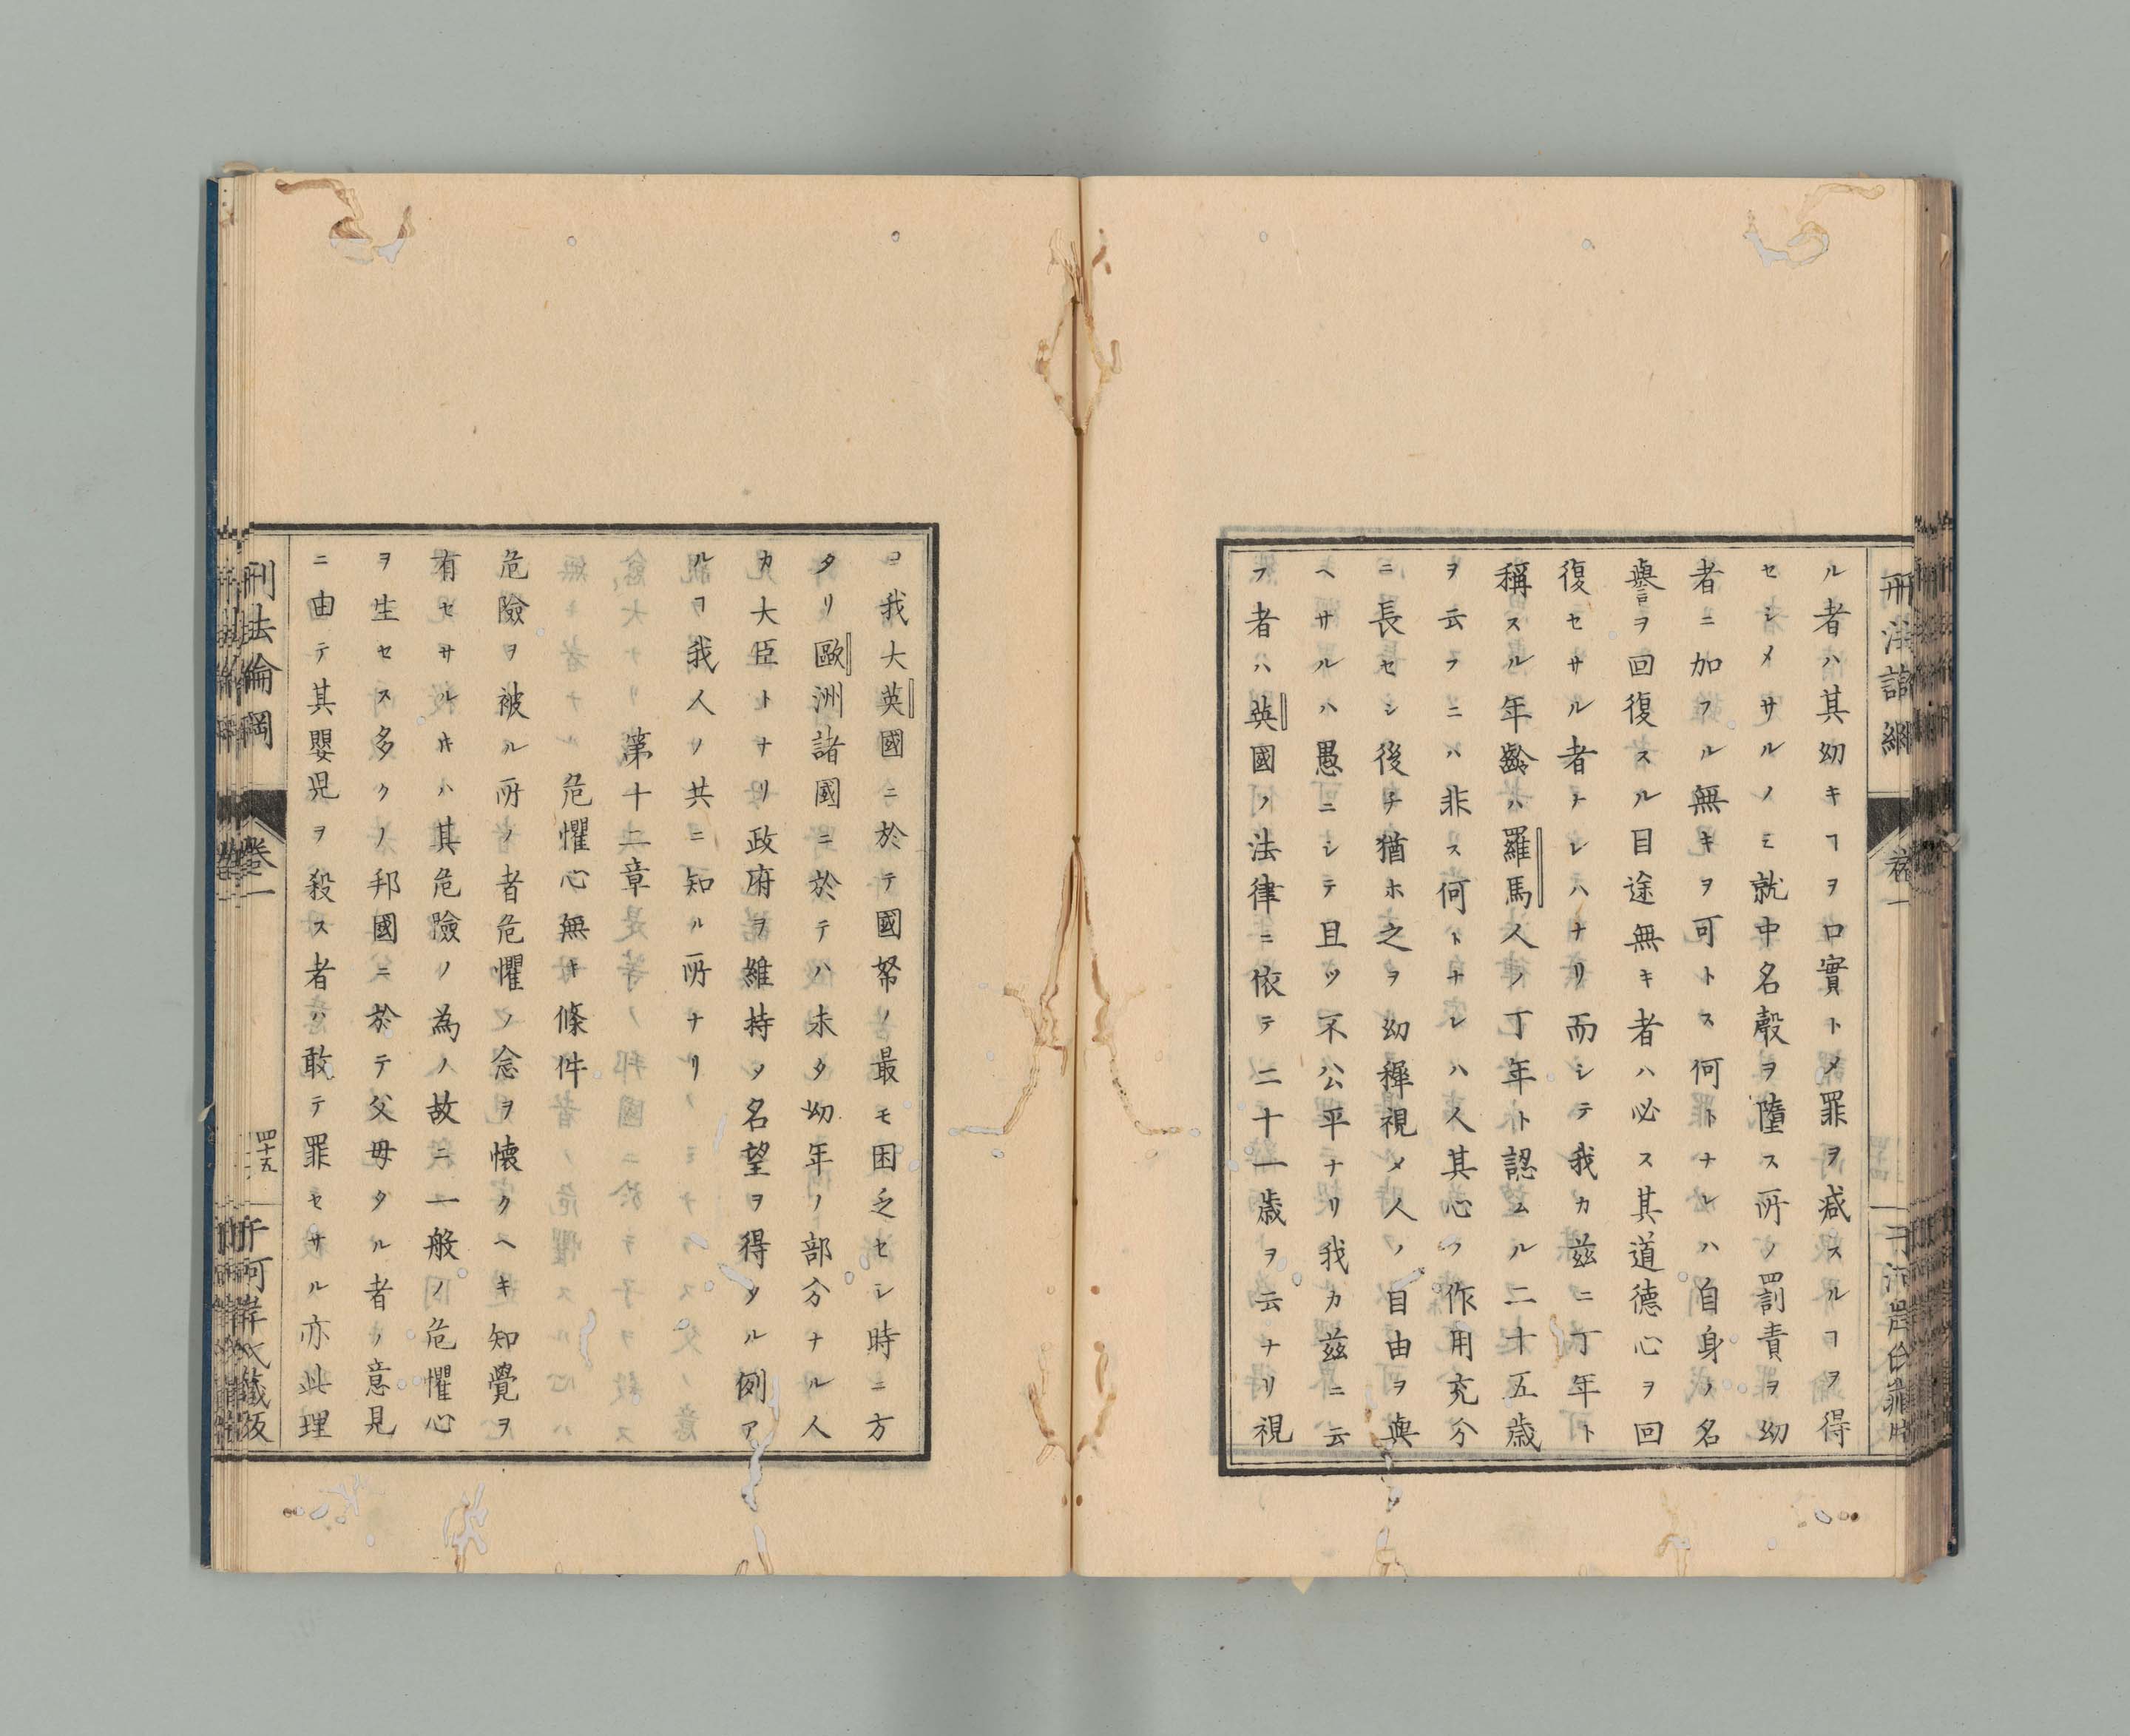 ル者ハ其幼キヿヲ口實トメ罪ヲ减スルヿヲ得
セシメサルノミ就中名聲ヲ墮ス所ノ罰責ヲ幼
者ニ加フル無キヲ可トス何トナレハ自身ノ名
譽ヲ回復スル目途無キ者ハ必ス其道德心ヲ回
復セサル者ナレハナリ而シテ我カ兹ニ丁年ト
稱スル年齡ハ羅馬人ノ丁年ト認ムル二十五歳
ヲ云フニハ非ス何トナレハ人其心ノ作用充分
ニ長セシ後チ猶ホ之ヲ幼穉視メ人ノ自由ヲ與
ヘサルハ愚ニシテ且ツ不公平ナリ我カ兹ニ云
フ者ハ英國ノ法律ニ依テ二十一歳ヲ云ナリ視
ヨ我大英國ニ於テ國帑ノ最モ困乏セシ時ニ方
タリ歐洲諸國ニ於テハ未タ幼年ノ部分ナル人
カ大臣トナリ政府ヲ維持メ名望ヲ得タル例ア
ルヿ我人ノ共ニ知ル所ナリ
第十二章
危懼心無キ條件
危險ヲ被ル所ノ者危懼ノ念ヲ懐クヘキ知覺ヲ
有セサルキハ其危險ノ為ノ故ニ一般ノ危懼心
ヲ生セス多クノ邦國ニ於テ父母タル者ノ意見
ニ由テ其嬰児ヲ殺ス者ハ敢テ罪セサル亦此理
刑法論綱
卷一
四十五
千河岸氏藏版